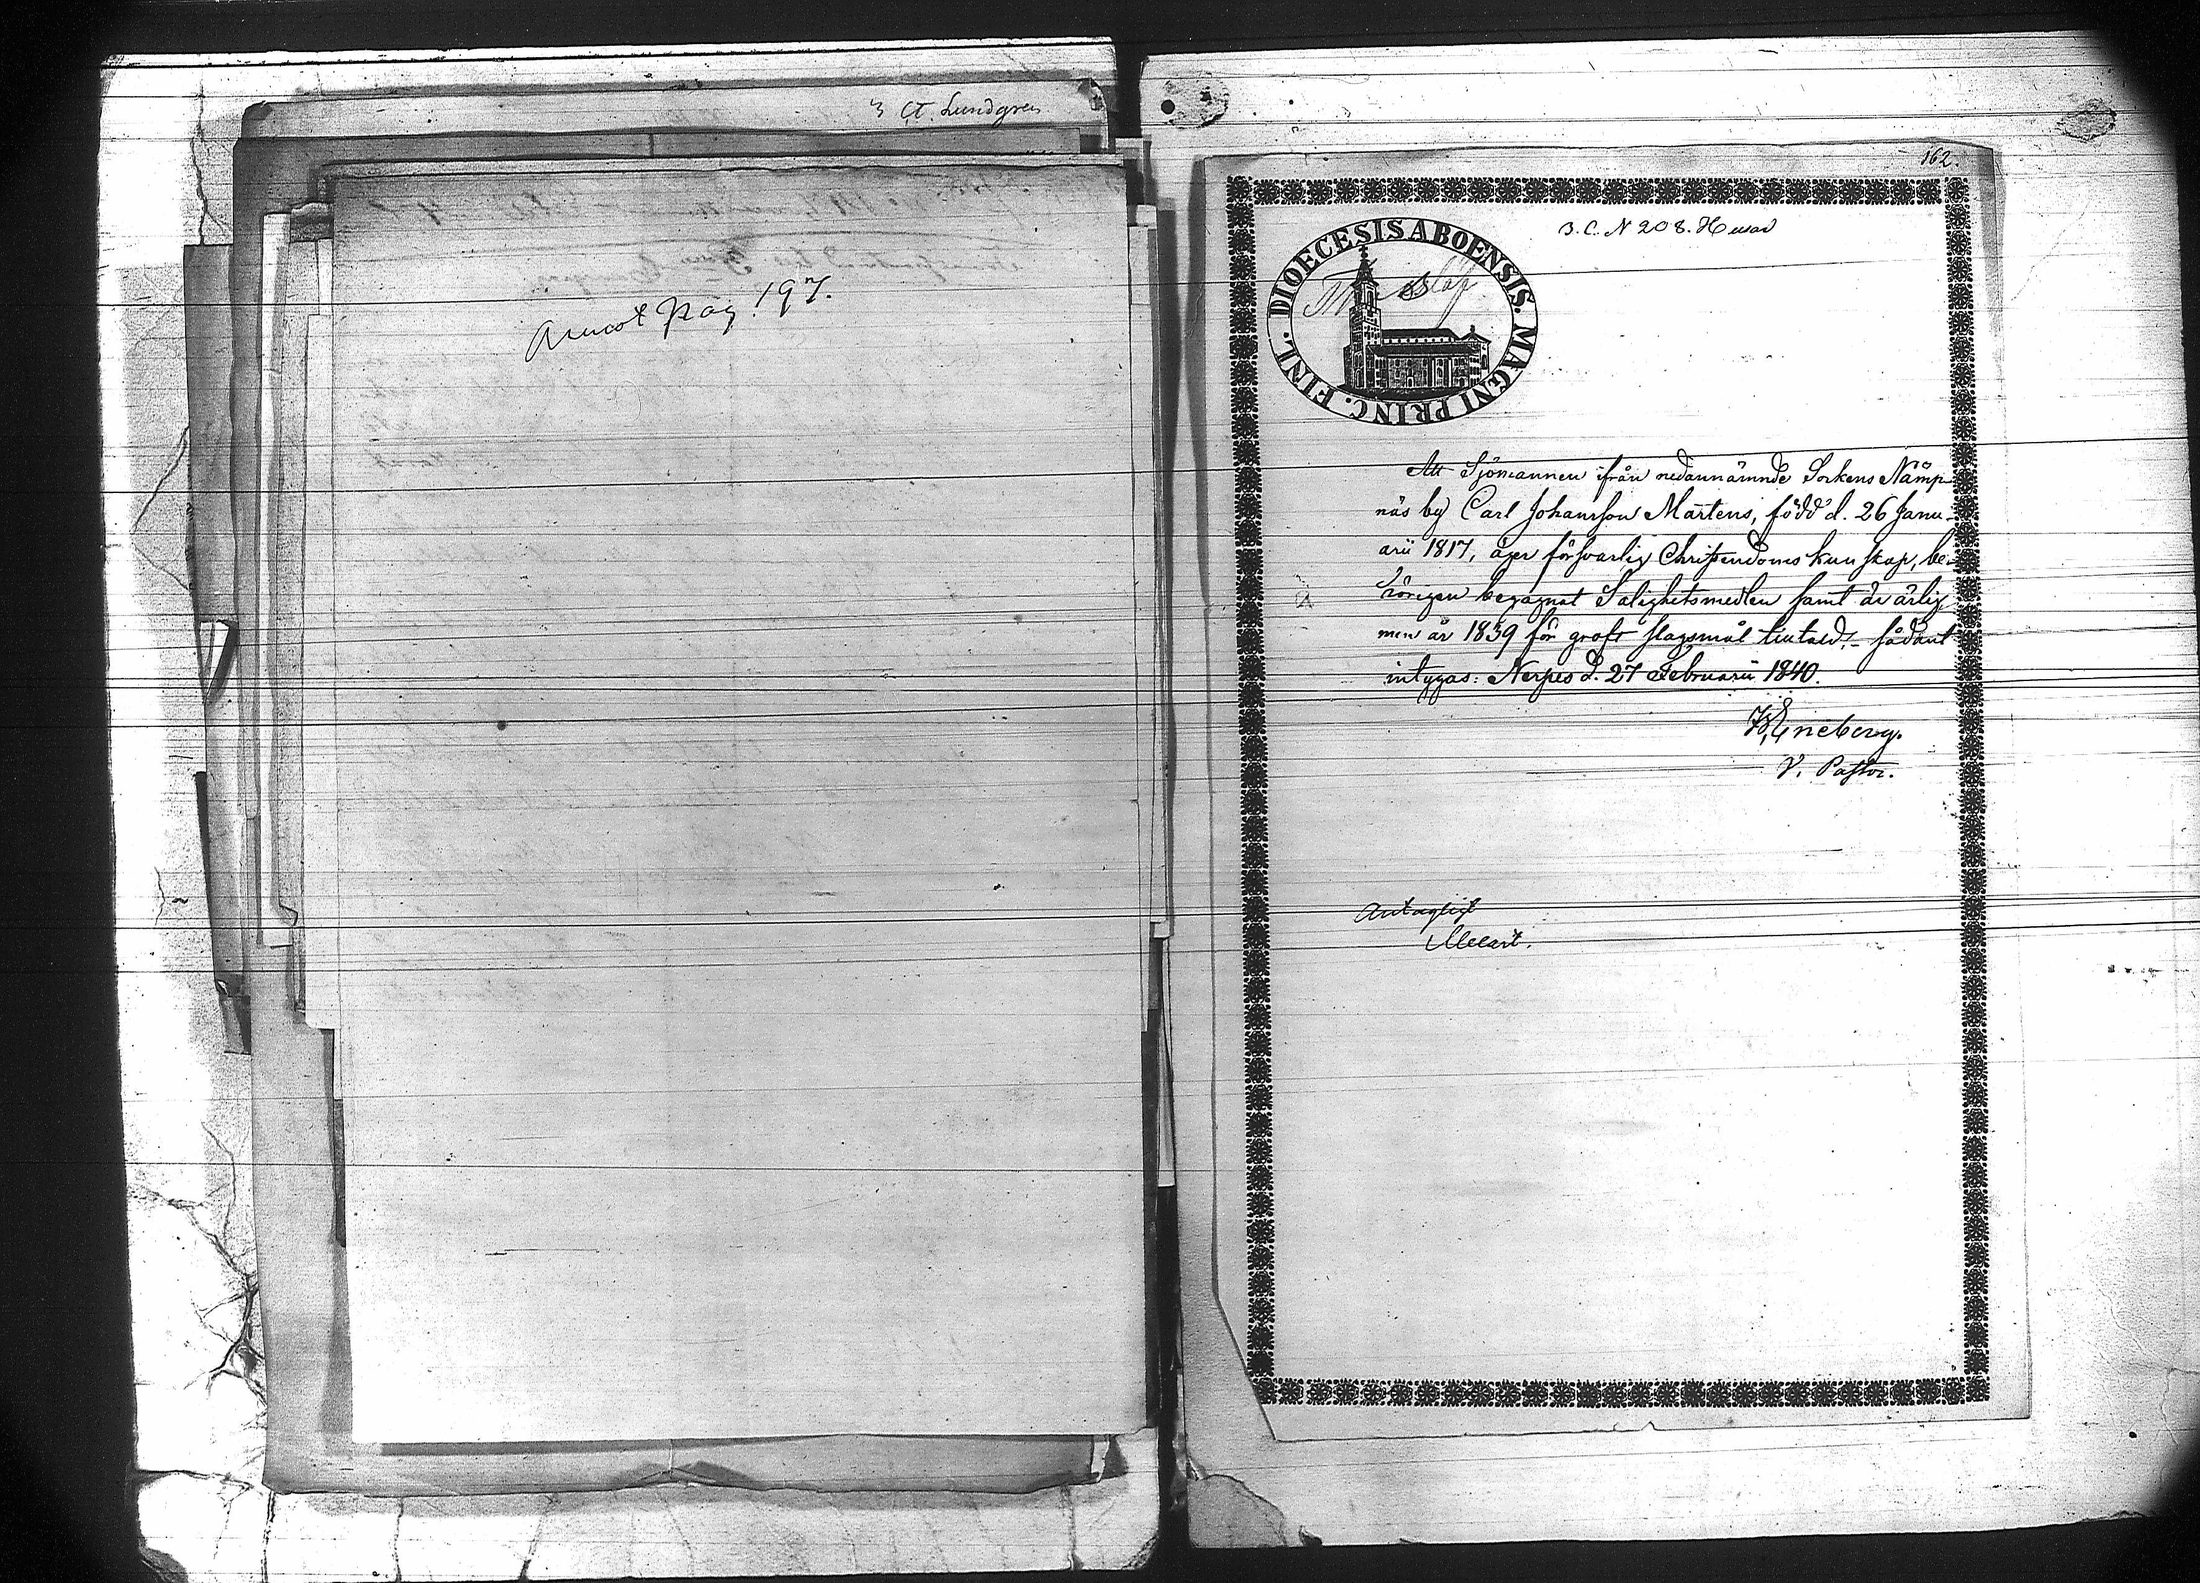 3 Ct. Lundgren
Pag. 197.
162.
B.C. N 208. Husar
DIOECESIS ABOENSIS. MAGNI PRINC. FINL.
Att Sjömannen ifrån nedannämnde Sockens Nämp
näs by Carl Johansson Mårtens, född d. 26 Janu-
arii 1817, äger försvarlig Christendoms kunskap, be-
hörigen begagnat Salighetsmedlen samt är ärlig,
men år 1839 för groft slagsmål tilltald; - sådant
intygas: Nerpes d. 27 Februarii 1840.
Eneberg.
V. Pastor.
Antaglig